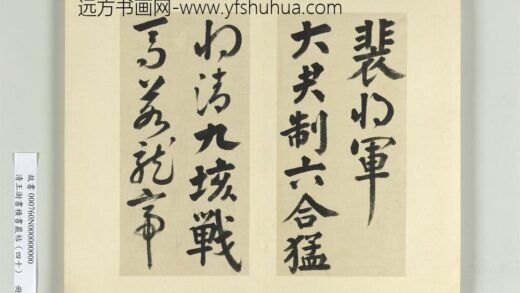 远方书画网-www.yfshuhua.com
裴将軍
大君制六合猛
将清九垓戰
馬若龍虎
故書 000760N000000000
清王澍書積書巖帖(四十) 冊